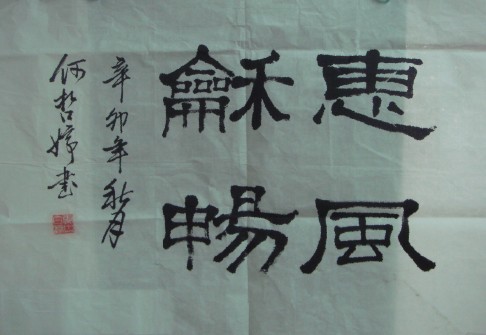 惠風
龢暢
辛卯年秋月
何哲婷書